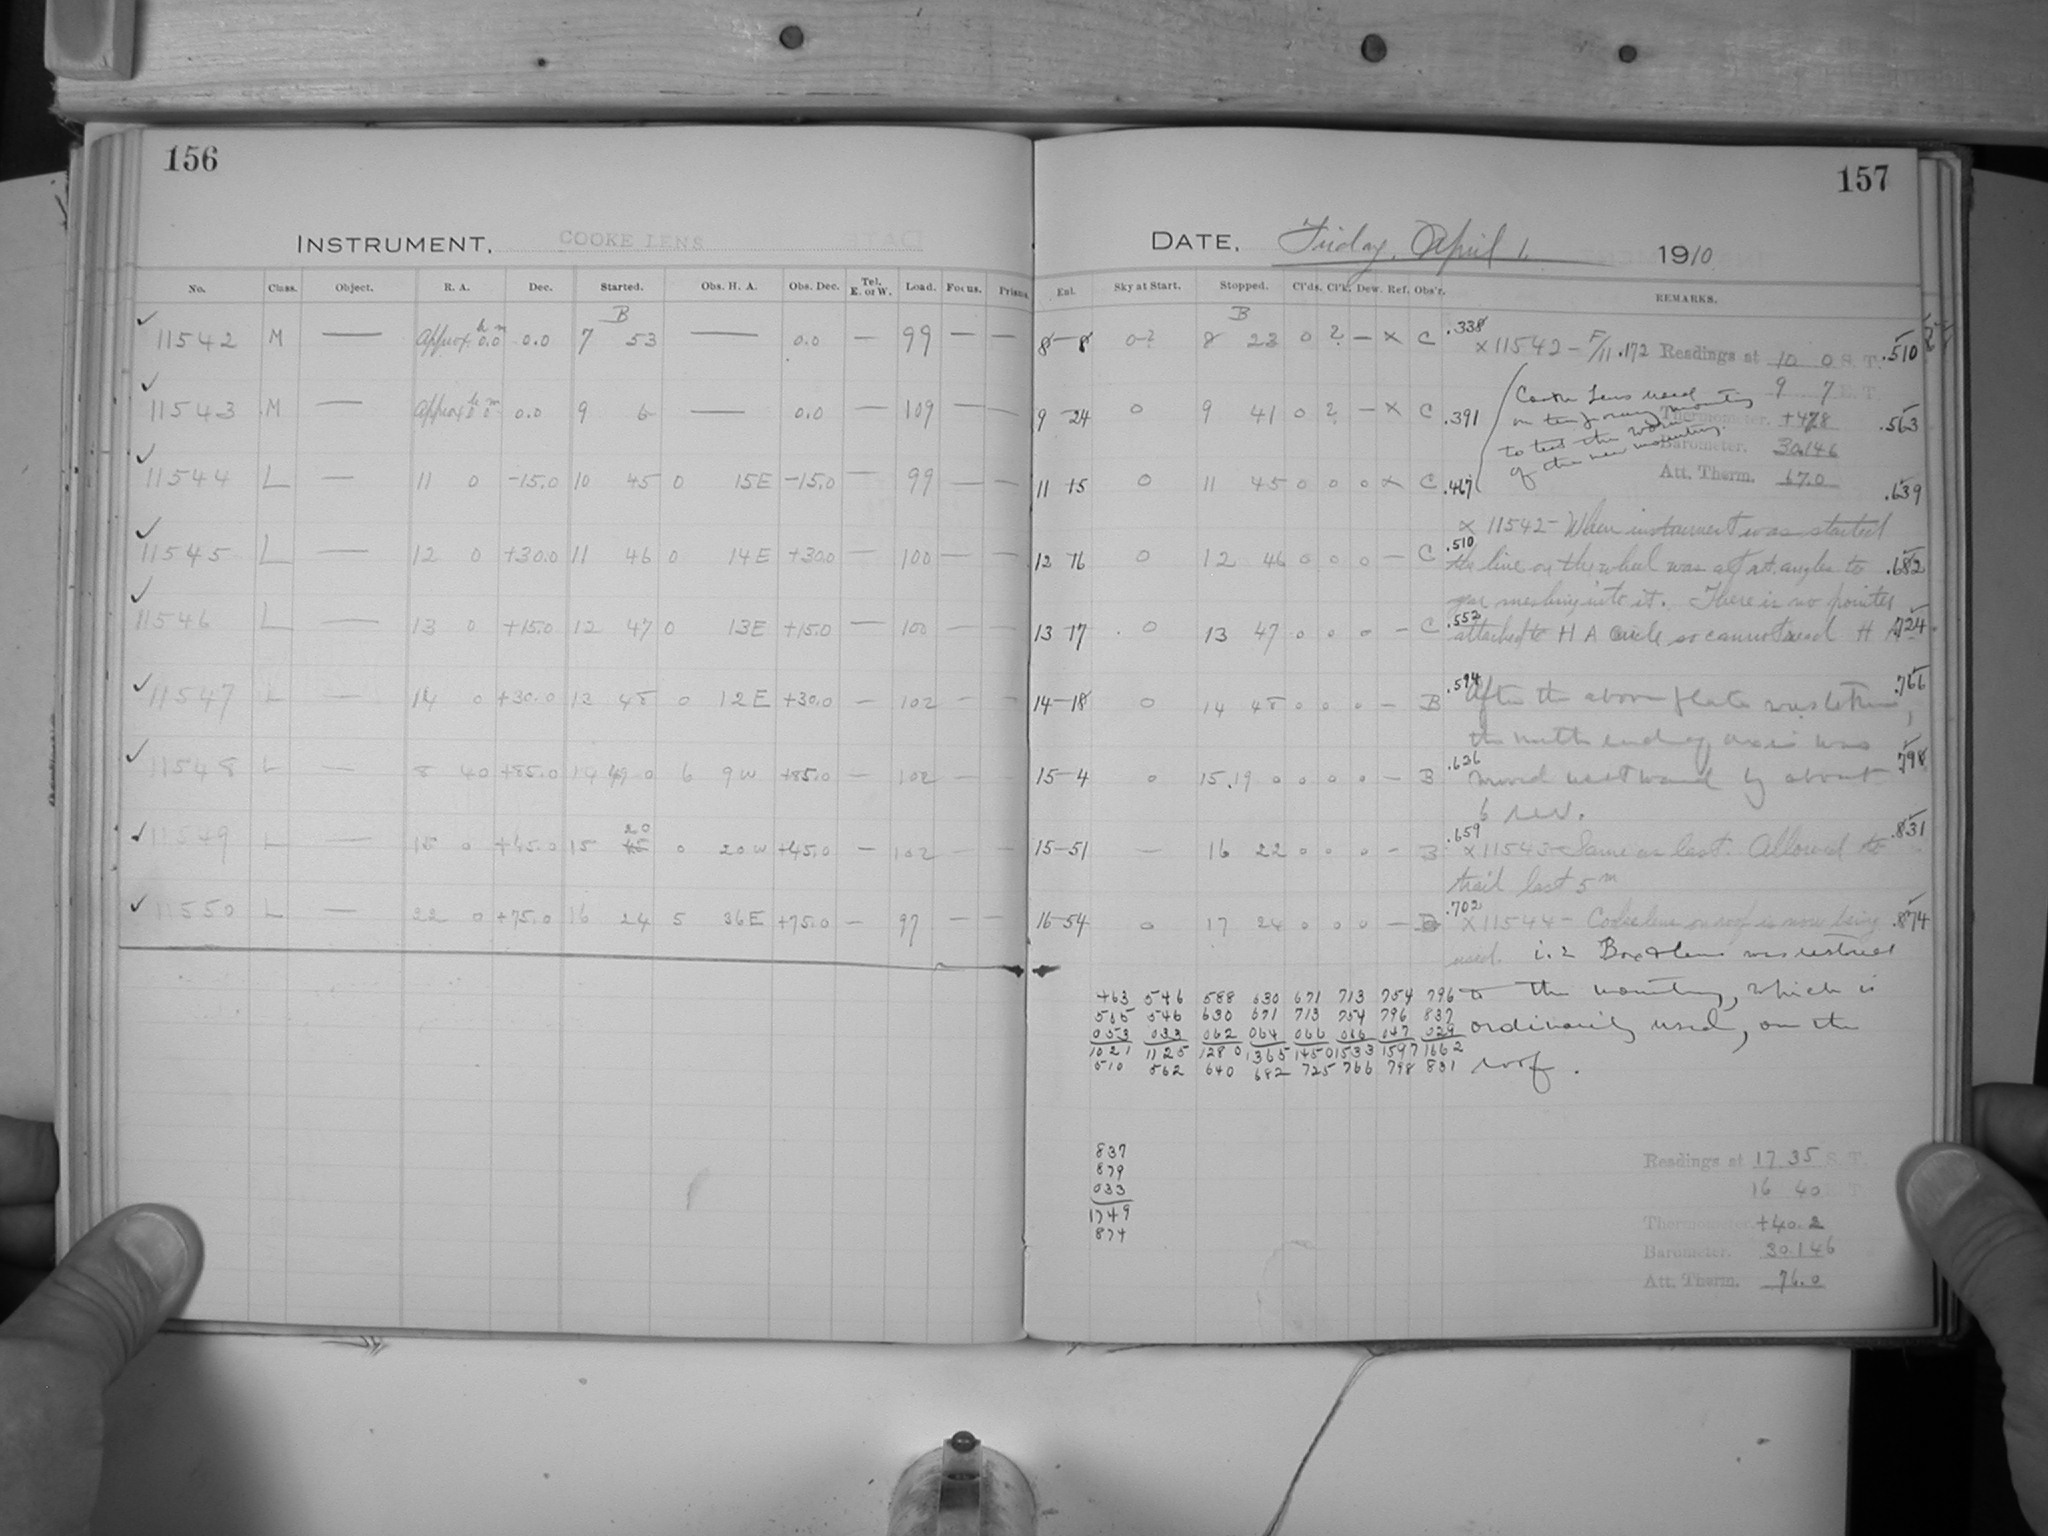 156
INSTRUMENT, COOKE LENS
No. Class. Object. R. A. Dec. Started. Obs. H. A. Obs. Dec. Tel. E. or W. Load. Focus. Prisms.
B
11542 M — Approx. 0h 0m 0.0 7 53 — 0.0 — 99 — —
11543 M — Approx 0h 0m 0.0 9 6 — 0.0 — 109 — —
11544 L — 11 0 -15.0 10 45 0 15E -15.0 — 99 — —
11545 L — 12 0 +30.0 11 46 0 14E +30.0 — 100 — —
11546 L — 13 0 +15.0 12 47 0 13E +15.0 — 100 — —
11547 L — 14 0 +30.0 13 48 0 12E +30.0 — 102 — —
11548 L — 8 40 +85.0 14 49 0 6 9W +85.0 — 102 — —
11549 L — 15 0 +45.0 15 20 0 20W +45.0 — 102 — —
11550 L — 22 0 +75.0 16 24 5 36E +75.0 — 97 — —
157
DATE, Friday, April 1, 1910
Exl. Sky at Start. Stopped. Cl'ds. Cl'k. Dew. Ref. Obs'r. REMARKS.
B
8-8 0? 8 23 0 ? — x C .338 .510
9-24 0 9 41 0 2 — x C .391 .563
11 15 0 11 45 0 0 0 x C .467 .639
12 16 0 12 46 0 0 0 — C .510 .682
13 17 0 13 47 0 0 0 — C .552 .724
14-18 0 14 48 0 0 0 — B .594 .766
15-4 0 15.19 0 0 0 0 — B .626 .798
15-51 — 16 22 0 0 0 — B .659 .831
16-54 0 17 24 0 0 0 — B .702 .874
x 11542 - F/11 .172
Readings at 10 0 S. T.
9 7 E. T.
Thermometer. +47.8
Barometer. 30.146
Att. Therm. 67.0
Cooke Lens used
on temporary mounting
to test the working
of the new mounting.
x 11542 - When instrument was started
the line on the wheel was at rt. angles to
gear meshing into it. There is no pointer
attached to H A circle so cannot read H A
After the above plate was taken,
the north end of axis was
moved westward by about
6 rev.
x 11543 - Same as last. Allowed to
trail last 5m
x 11544 - Cooke lens on roof is now being
used. i.e. Box & lens was restored
to the mounting, which is
ordinarily used, on the
roof.
463 546 588 630 671 713 754 796
505 546 630 671 713 754 796 837
053 033 062 064 066 066 047 029
1021 1125 1280 1365 1450 1533 1597 1662
510 562 640 682 725 766 798 831
837
879
033
1749
874
Readings at 17 35 S. T.
16 40
Thermometer. +40.2
Barometer. 30.146
Att. Therm. 76.0